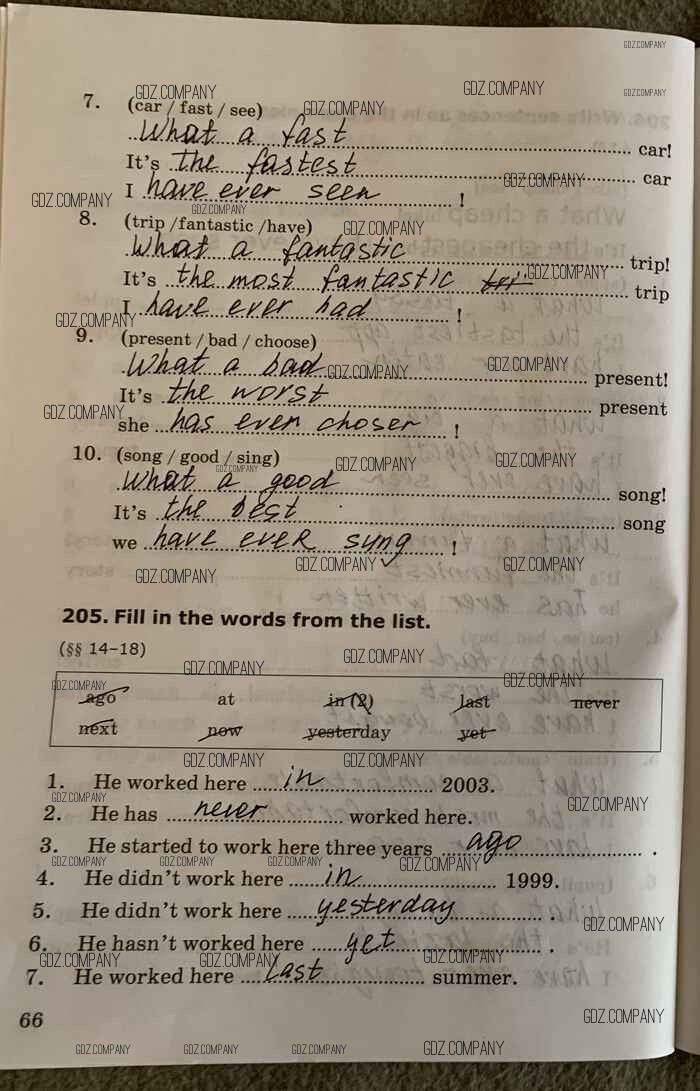 7. (car / fast / see)
What a fast car!
It's the fastest car
I have ever seen !
8. (trip /fantastic /have)
What a fantastic trip!
It's the most fantastic trip
I have ever had !
9. (present / bad / choose)
What a bad present!
It's the worst present
she has ever chosen !
10. (song / good / sing)
What a good song!
It's the best song
we have ever sung !
205. Fill in the words from the list.
(§§ 14–18)
ago at in (2) last never
next now yesterday yet
1. He worked here in 2003.
2. He has never worked here.
3. He started to work here three years ago .
4. He didn't work here in 1999.
5. He didn't work here yesterday .
6. He hasn't worked here yet .
7. He worked here last summer.
66
GDZ.COMPANY